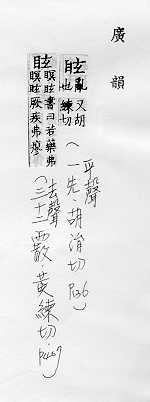 廣韻
眩
亂又胡
也練切
（平聲
一先·胡涓切 P136）
眩
瞑眩書曰若藥弗
瞑眩厥疾弗廖
（去聲
三十二霰·黃練切·P407）